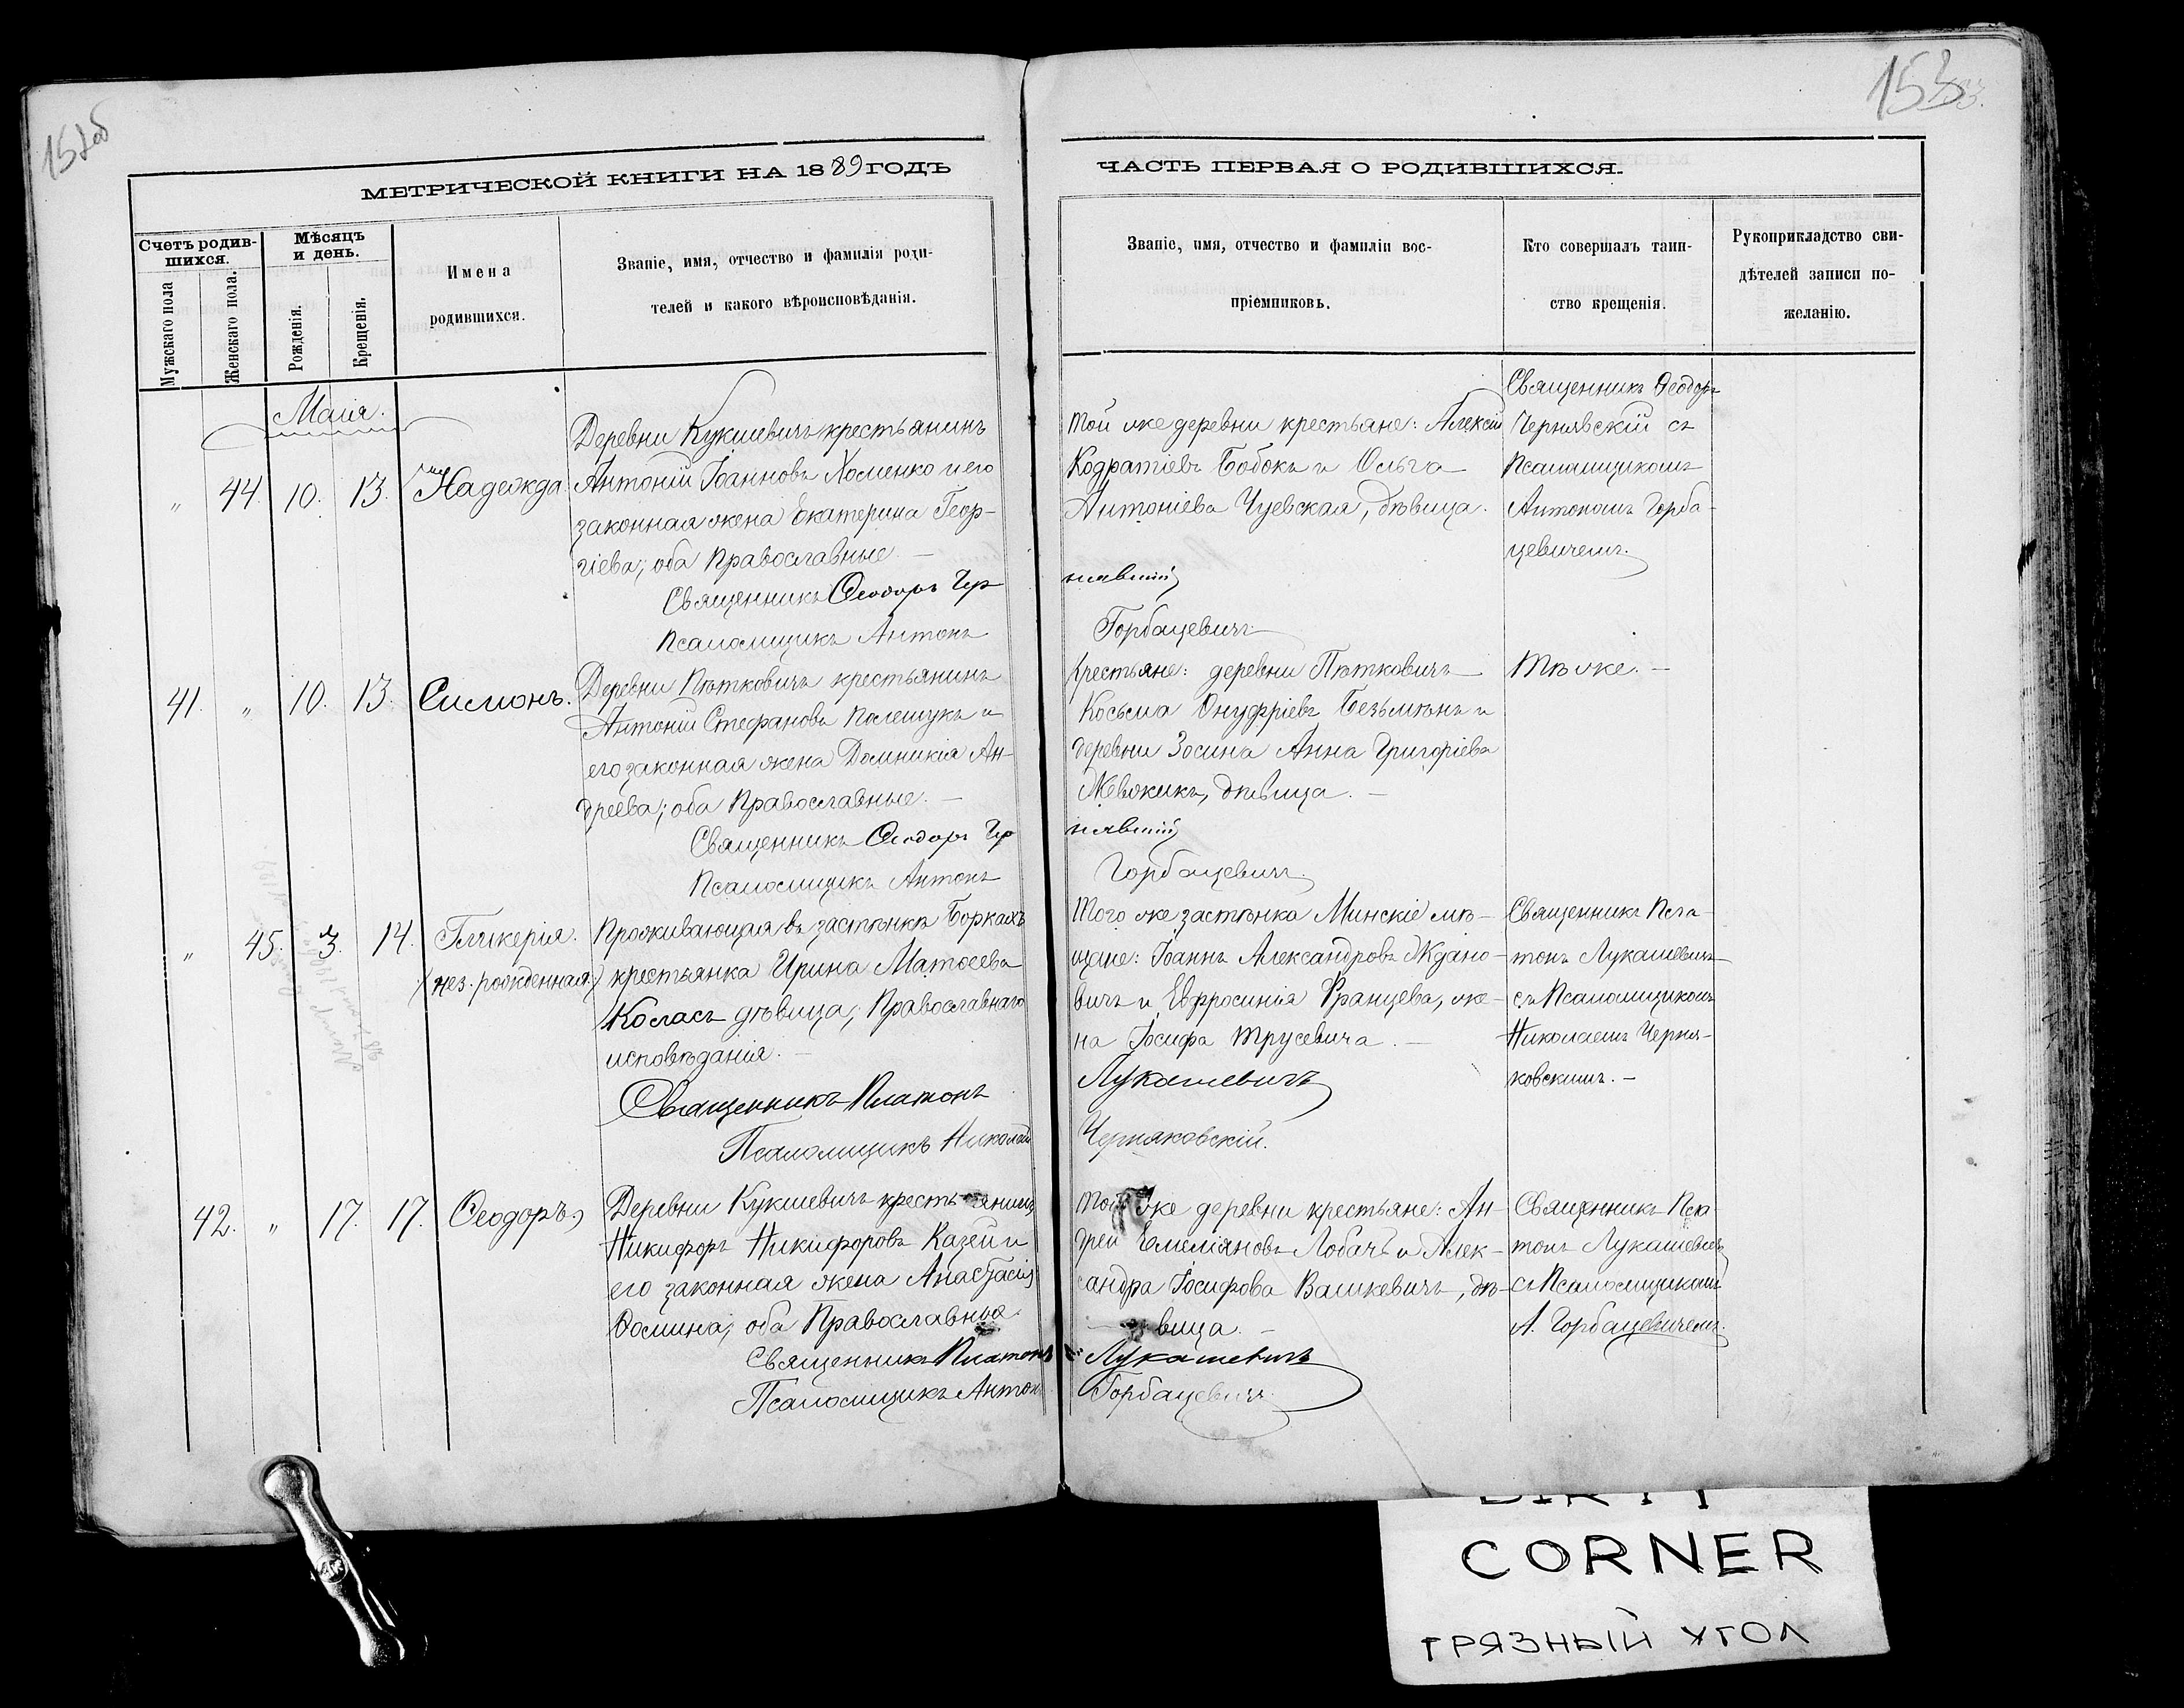 152об
153
МЕТРИЧЕСКОЙ КНИГИ НА 1889 ГОДЪ
ЧАСТЬ ПЕРВАЯ О РОДИВШИХСЯ.
Счетъ родив-
шихся.
Мужскаго пола
Женскаго пола.
Мѣсяцъ
и день.
Рожденія.
Крещенія.
Имена
родившихся.
Званіе, имя, отчество и фамилія роди-
телей и какого вѣроисповѣданія.
Званіе, имя, отчество и фамиліи вос-
пріемниковъ.
Кто совершалъ таин-
ство крещенія.
Рукоприкладство сви-
дѣтелей записи по-
желанію.
Маія.
" 44. 10. 13. Надежда
Деревни Кукшевичъ крестьянинъ
Антоній Іоанновъ Хоменко и его
законная жена Екатерина Геор-
гіева; оба Православные. —
Священникъ Ѳеодоръ Чер
Псаломщикъ Антонъ
Той же деревни крестьяне: Алексій
Кодратіевъ Бобокъ и Ольга
Антоніева Чуевская, дѣвица.
нявскій
Горбацевичъ
Священникъ Ѳеодоръ
Чернявскій съ
Псаломщикомъ
Антономъ Горба-
цевичемъ.
41. " 10. 13. Симонъ.
Деревни Пѣтковичъ крестьянинъ
Антоній Стефановъ Полешукъ и
его законная жена Домникія Ан-
дреева; оба Православные. —
Священникъ Ѳеодоръ Чер
Псаломщикъ Антонъ
Крестьяне: деревни Пѣтковичъ
Косьма Онуфріевъ Безъмѣнъ и
деревни Зосина Анна Григоріева
Жевжикъ, дѣвица. —
нявскій
Горбацевичъ
Тѣ же. —
" 45. 3. 14. Гликерія.
(нез. рожденная)
Проживающая въ застѣнкѣ Боркахъ
крестьянка Ирина Матѳеева
Коласъ дѣвица; Православнаго
исповѣданія. —
Священникъ Платонъ
Псаломщикъ Николай
Того же застѣнка Минскіе мѣ-
щане: Іоаннъ Александровъ Ждано-
вичъ и Евфросинія Францева, же-
на Іосифа Трусевича. —
Лукашевичъ
Черняковскій.
Священникъ Пла-
тонъ Лукашевичъ
съ Псаломщикомъ
Николаемъ Черня-
ковскимъ. —
42. " 17. 17. Ѳеодоръ,
Деревни Кукшевичъ крестьянинъ
Никифоръ Никифоровъ Казей и
его законная жена Анастасія
Ѳомина; оба Православные.
Священникъ Платонъ
Псаломщикъ Антонъ
Той же деревни крестьяне: Ан-
дрей Емеліяновъ Лобачъ и Алек-
сандра Іосифова Вашкевичъ, дѣ-
вица. —
Лукашевичъ
Горбацевичъ
Священникъ Пла-
тонъ Лукашевичъ
съ Псаломщикомъ
А. Горбацевичемъ.
DIRTY
CORNER
ГРЯЗНЫЙ УГОЛ